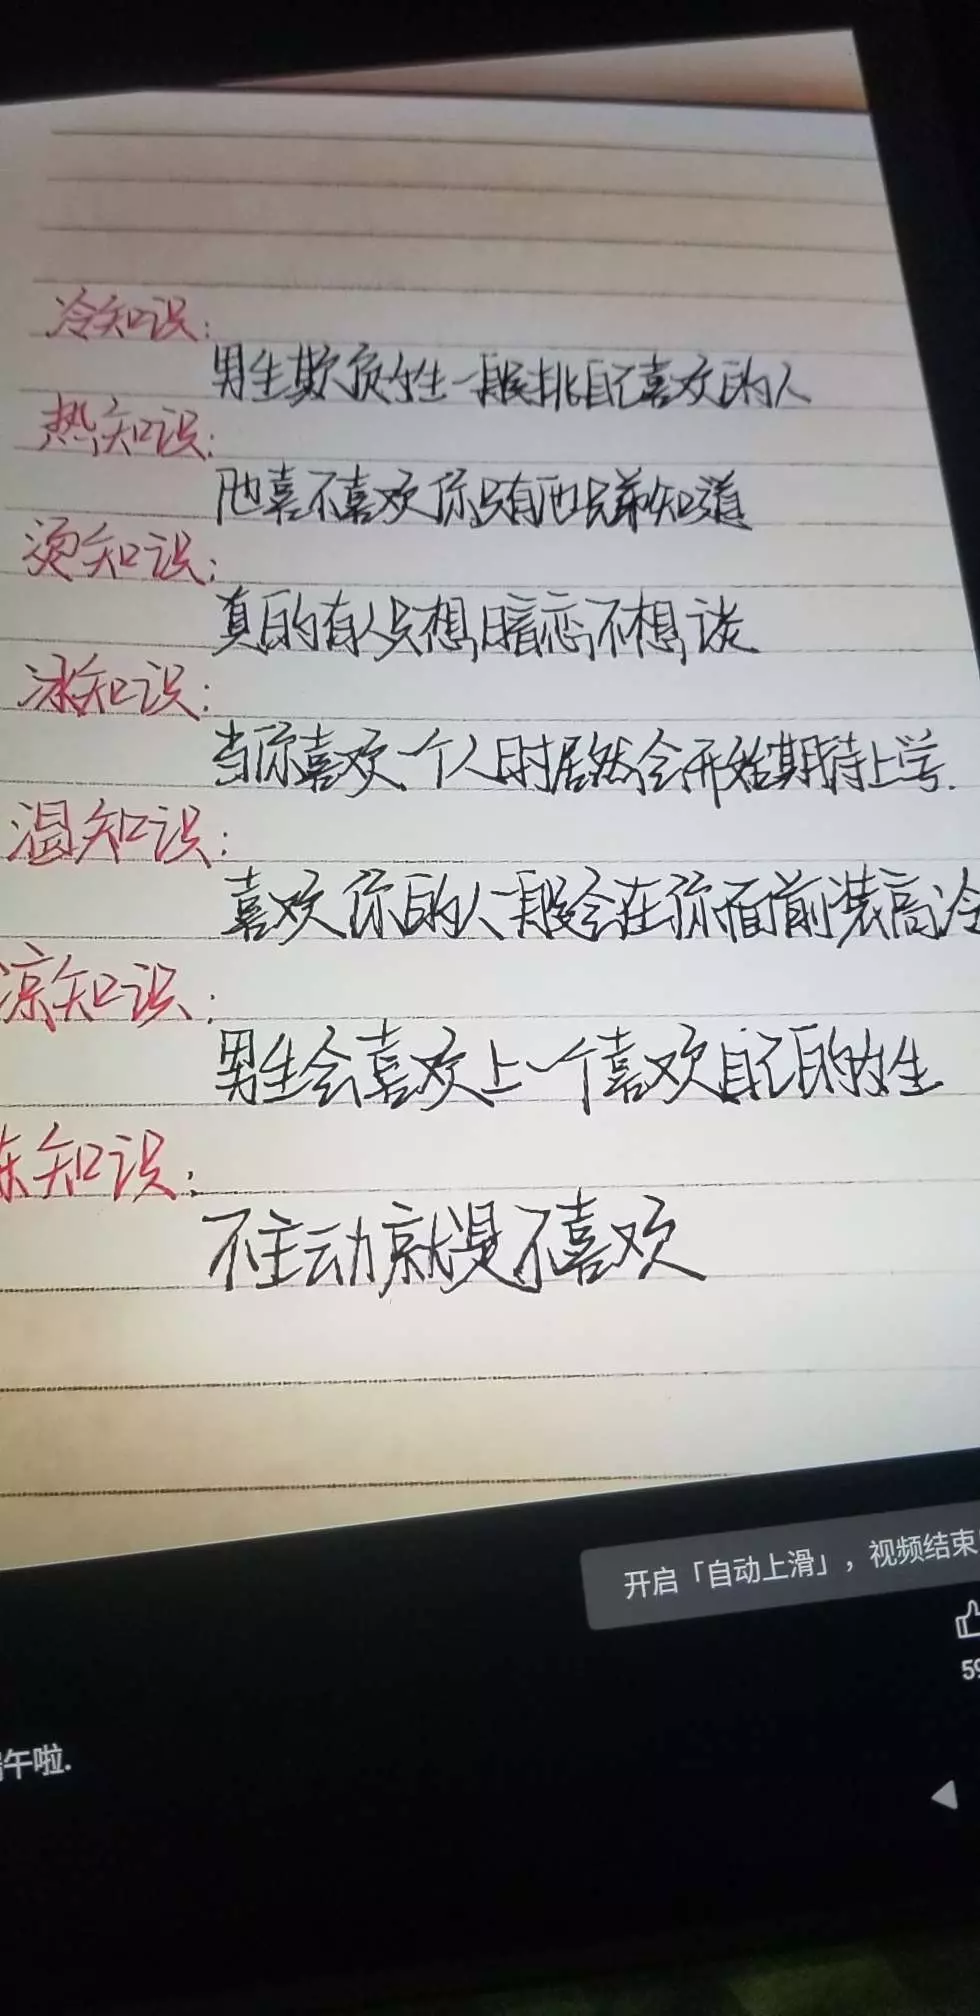 冷知识:
男生欺负女生一般挑自己喜欢的人
热知识:
他喜不喜欢你只有他兄弟知道
烫知识:
真的有人只想暗恋,不想谈
冰知识:
当你喜欢一个人时居然会开始期待上学.
温知识:
喜欢你的人一般会在你面前装高冷
凉知识:
男生会喜欢上一个喜欢自己的女生
冻知识:
不主动就是不喜欢
开启「自动上滑」，视频结束
59
午啦.